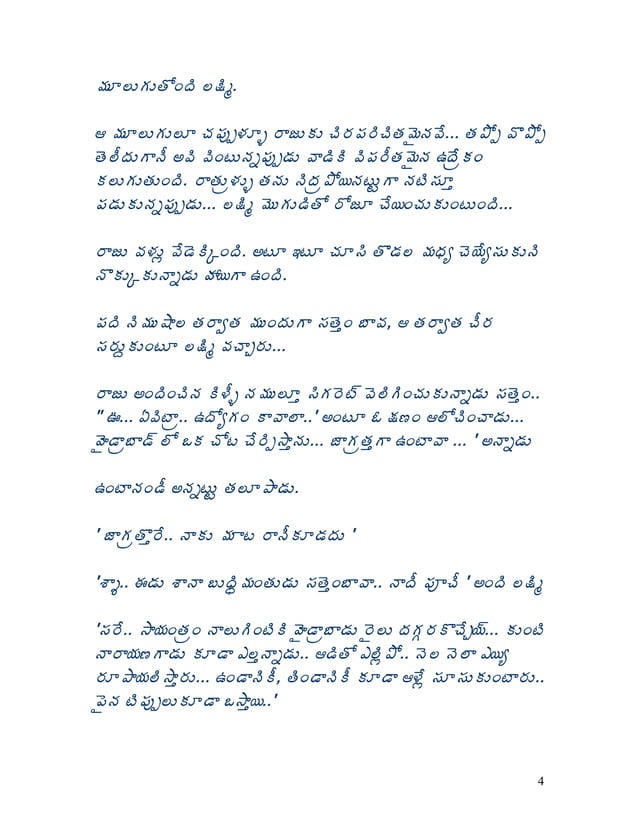 మూలుగుతోంది లక్ష్మి.
ఆ మూలుగులూ చప్పుళ్ళూ రాజుకు చిరపరిచితమైనవే... తప్పో వొప్పో
తెలీదుగానీ అవి వింటున్నప్పుడు వాడికి విపరీతమైన ఉద్రేకం
కలుగుతుంది. రాత్రుళ్ళు తను నిద్రపోయినట్టుగా నటిస్తూ
పడుకున్నప్పుడు... లక్ష్మి మొగుడితో రోజూ చేయించుకుంటుంది...
రాజు వళ్లు వేడెక్కింది. అటూ ఇటూ చూసి తొడల మధ్య చెయ్యేసుకుని
నొక్కుకున్నాడు హాయిగా ఉంది.
పది నిముషాల తర్వాత ముందుగా సత్తెం బావ, ఆ తర్వాత చీర
సర్దుకుంటూ లక్ష్మి వచ్చారు...
రాజు అందించిన కిళ్ళీ నములుతూ సిగరెట్ వెలిగించుకున్నాడు సత్తెం..
"ఊ... ఏవిట్రా.. ఉద్యోగం కావాలా..' అంటూ ఓ క్షణం ఆలోచించాడు...
హైడ్రాబాడ్ లో ఒక చోట చేర్పిస్తాను... జాగ్రత్తగా ఉంటావా ... ' అన్నాడు
ఉంటానండీ అన్నట్టు తలూపాడు.
' జాగ్రత్తొరే.. నాకు మాట రానీకూడదు '
'శ్యా.. ఈడు శానా బుద్ధిమంతుడు సత్తెంబావా.. నాదీ పూచీ ' అంది లక్ష్మి
'సరే.. సాయంత్రం నాలుగింటికి హైడ్రాబాడు రైలు దగ్గరకొచ్చేయ్... కుంటి
నారాయణగాడు కూడా ఎల్తన్నాడు.. ఆడితో ఎల్లిపో.. నెల నెలా ఎయ్యి
రూపాయలిస్తారు... ఉండానికీ, తిండానికీ కూడా ఆళ్లే సూసుకుంటారు..
పైన టిప్పులుకూడా ఒస్తాయి..'
4